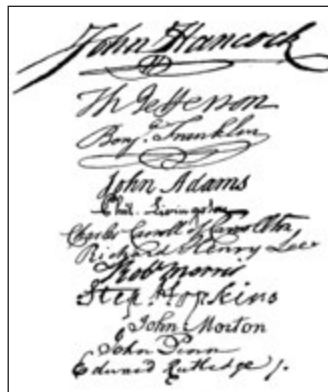 John Hancock
Th Jefferson
Benj. Franklin
John Adams
Phil. Livingston
Charles Carroll of Carrollton
Richard Henry Lee
Robt Morris
Step. Hopkins
John Morton
John Penn
Edward Rutledge